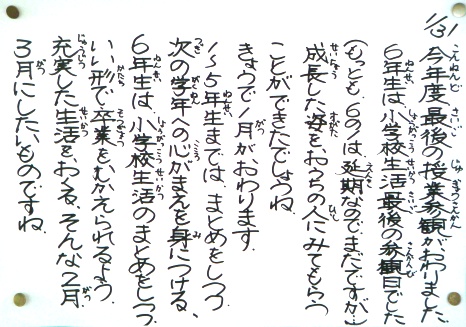 1/31
今年度最後の授業参観がおわりました。
6年生は小学校生活最後の参観日でした
(もっとも、6の1は延期なのでまだですが…)
成長した姿を、おうちの人にみてもらう
ことができたでしょうね。
きょうで1月がおわります。
1〜5年生までは、まとめをしつつ
次の学年への心がまえを身につける、
6年生は小学校生活のまとめをしつつ
いい形で卒業をむかえられるよう、
充実した生活を、おくる、そんな2月
3月にしたいものですね。